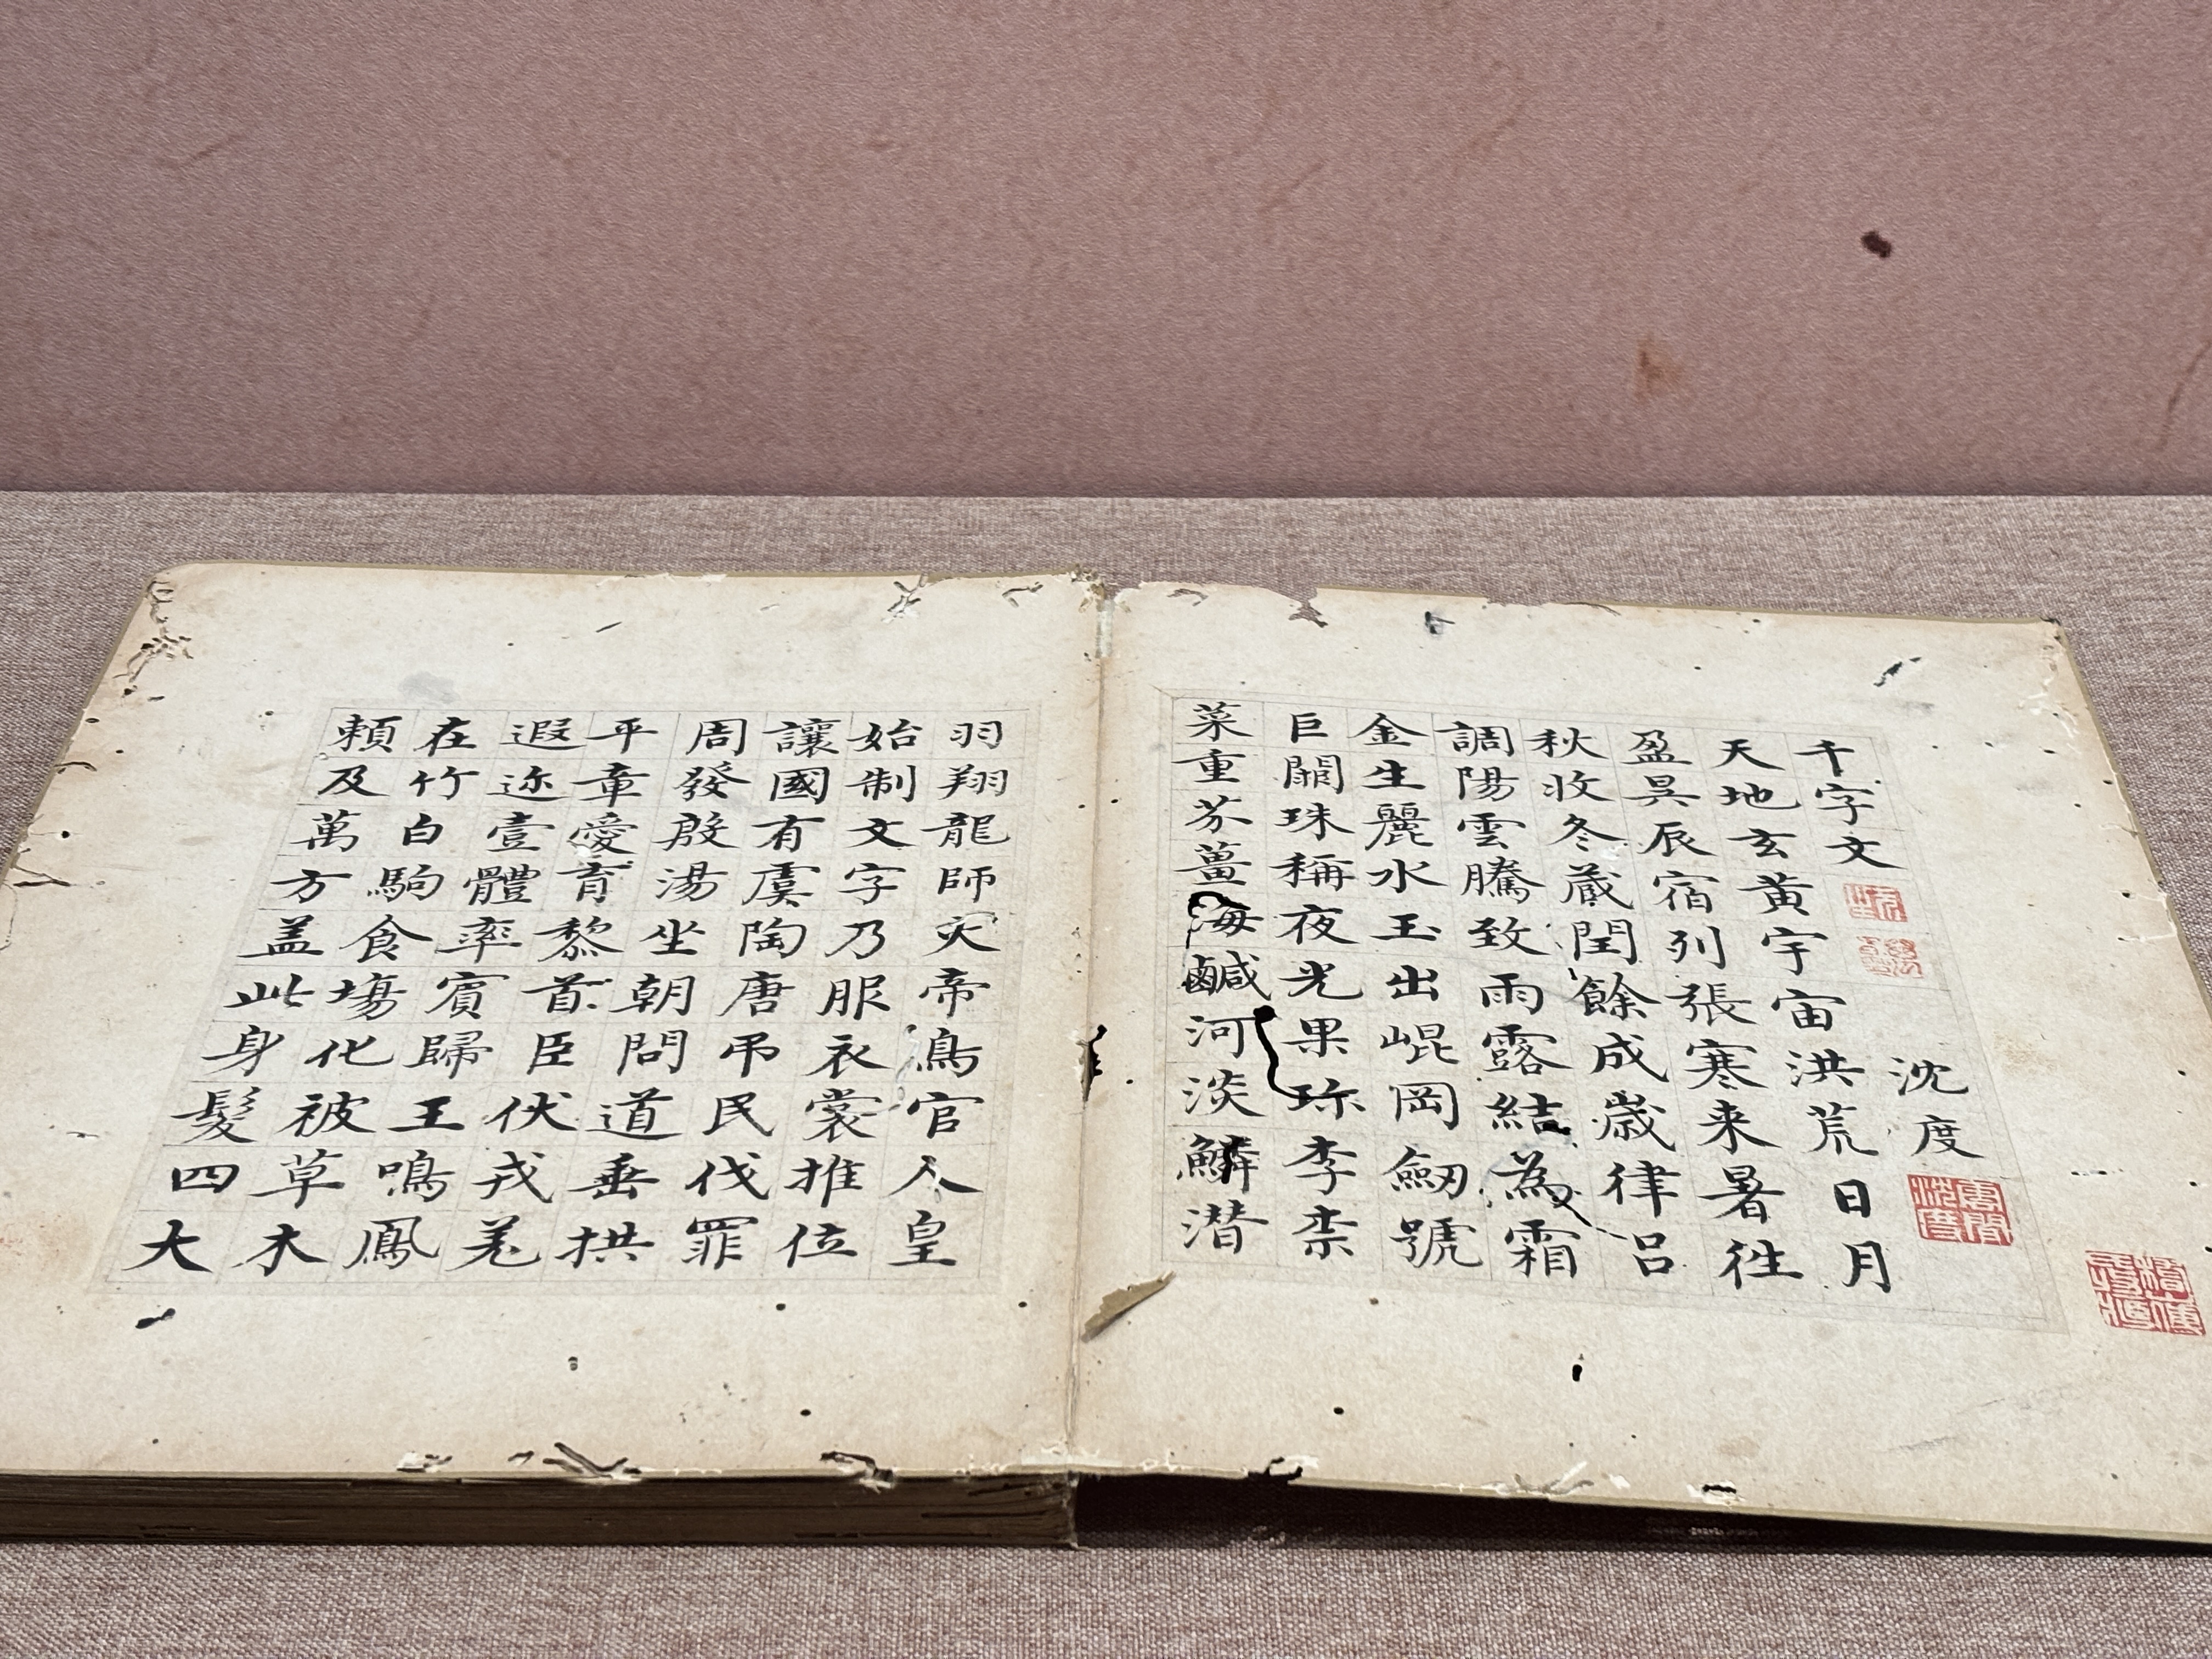 千字文
沈度
天地玄黄宇宙洪荒日月
盈昃辰宿列張寒来暑徃
秋收冬蔵閏餘成歲律吕
調陽雲騰致雨露結為霜
金生麗水玉出崐岡劒號
巨闕珠稱夜光果珎李柰
菜重芥薑海鹹河淡鱗潜
羽翔龍師灾帝鳥官人皇
始制文字乃服衣裳推位
讓國有虞陶唐吊民伐罪
周發殷湯坐朝問道垂拱
平章愛育黎首臣伏戎羌
遐迩壹體率賓歸王鳴鳳
在竹白駒食塲化被草木
頼及萬方盖此身髮四大